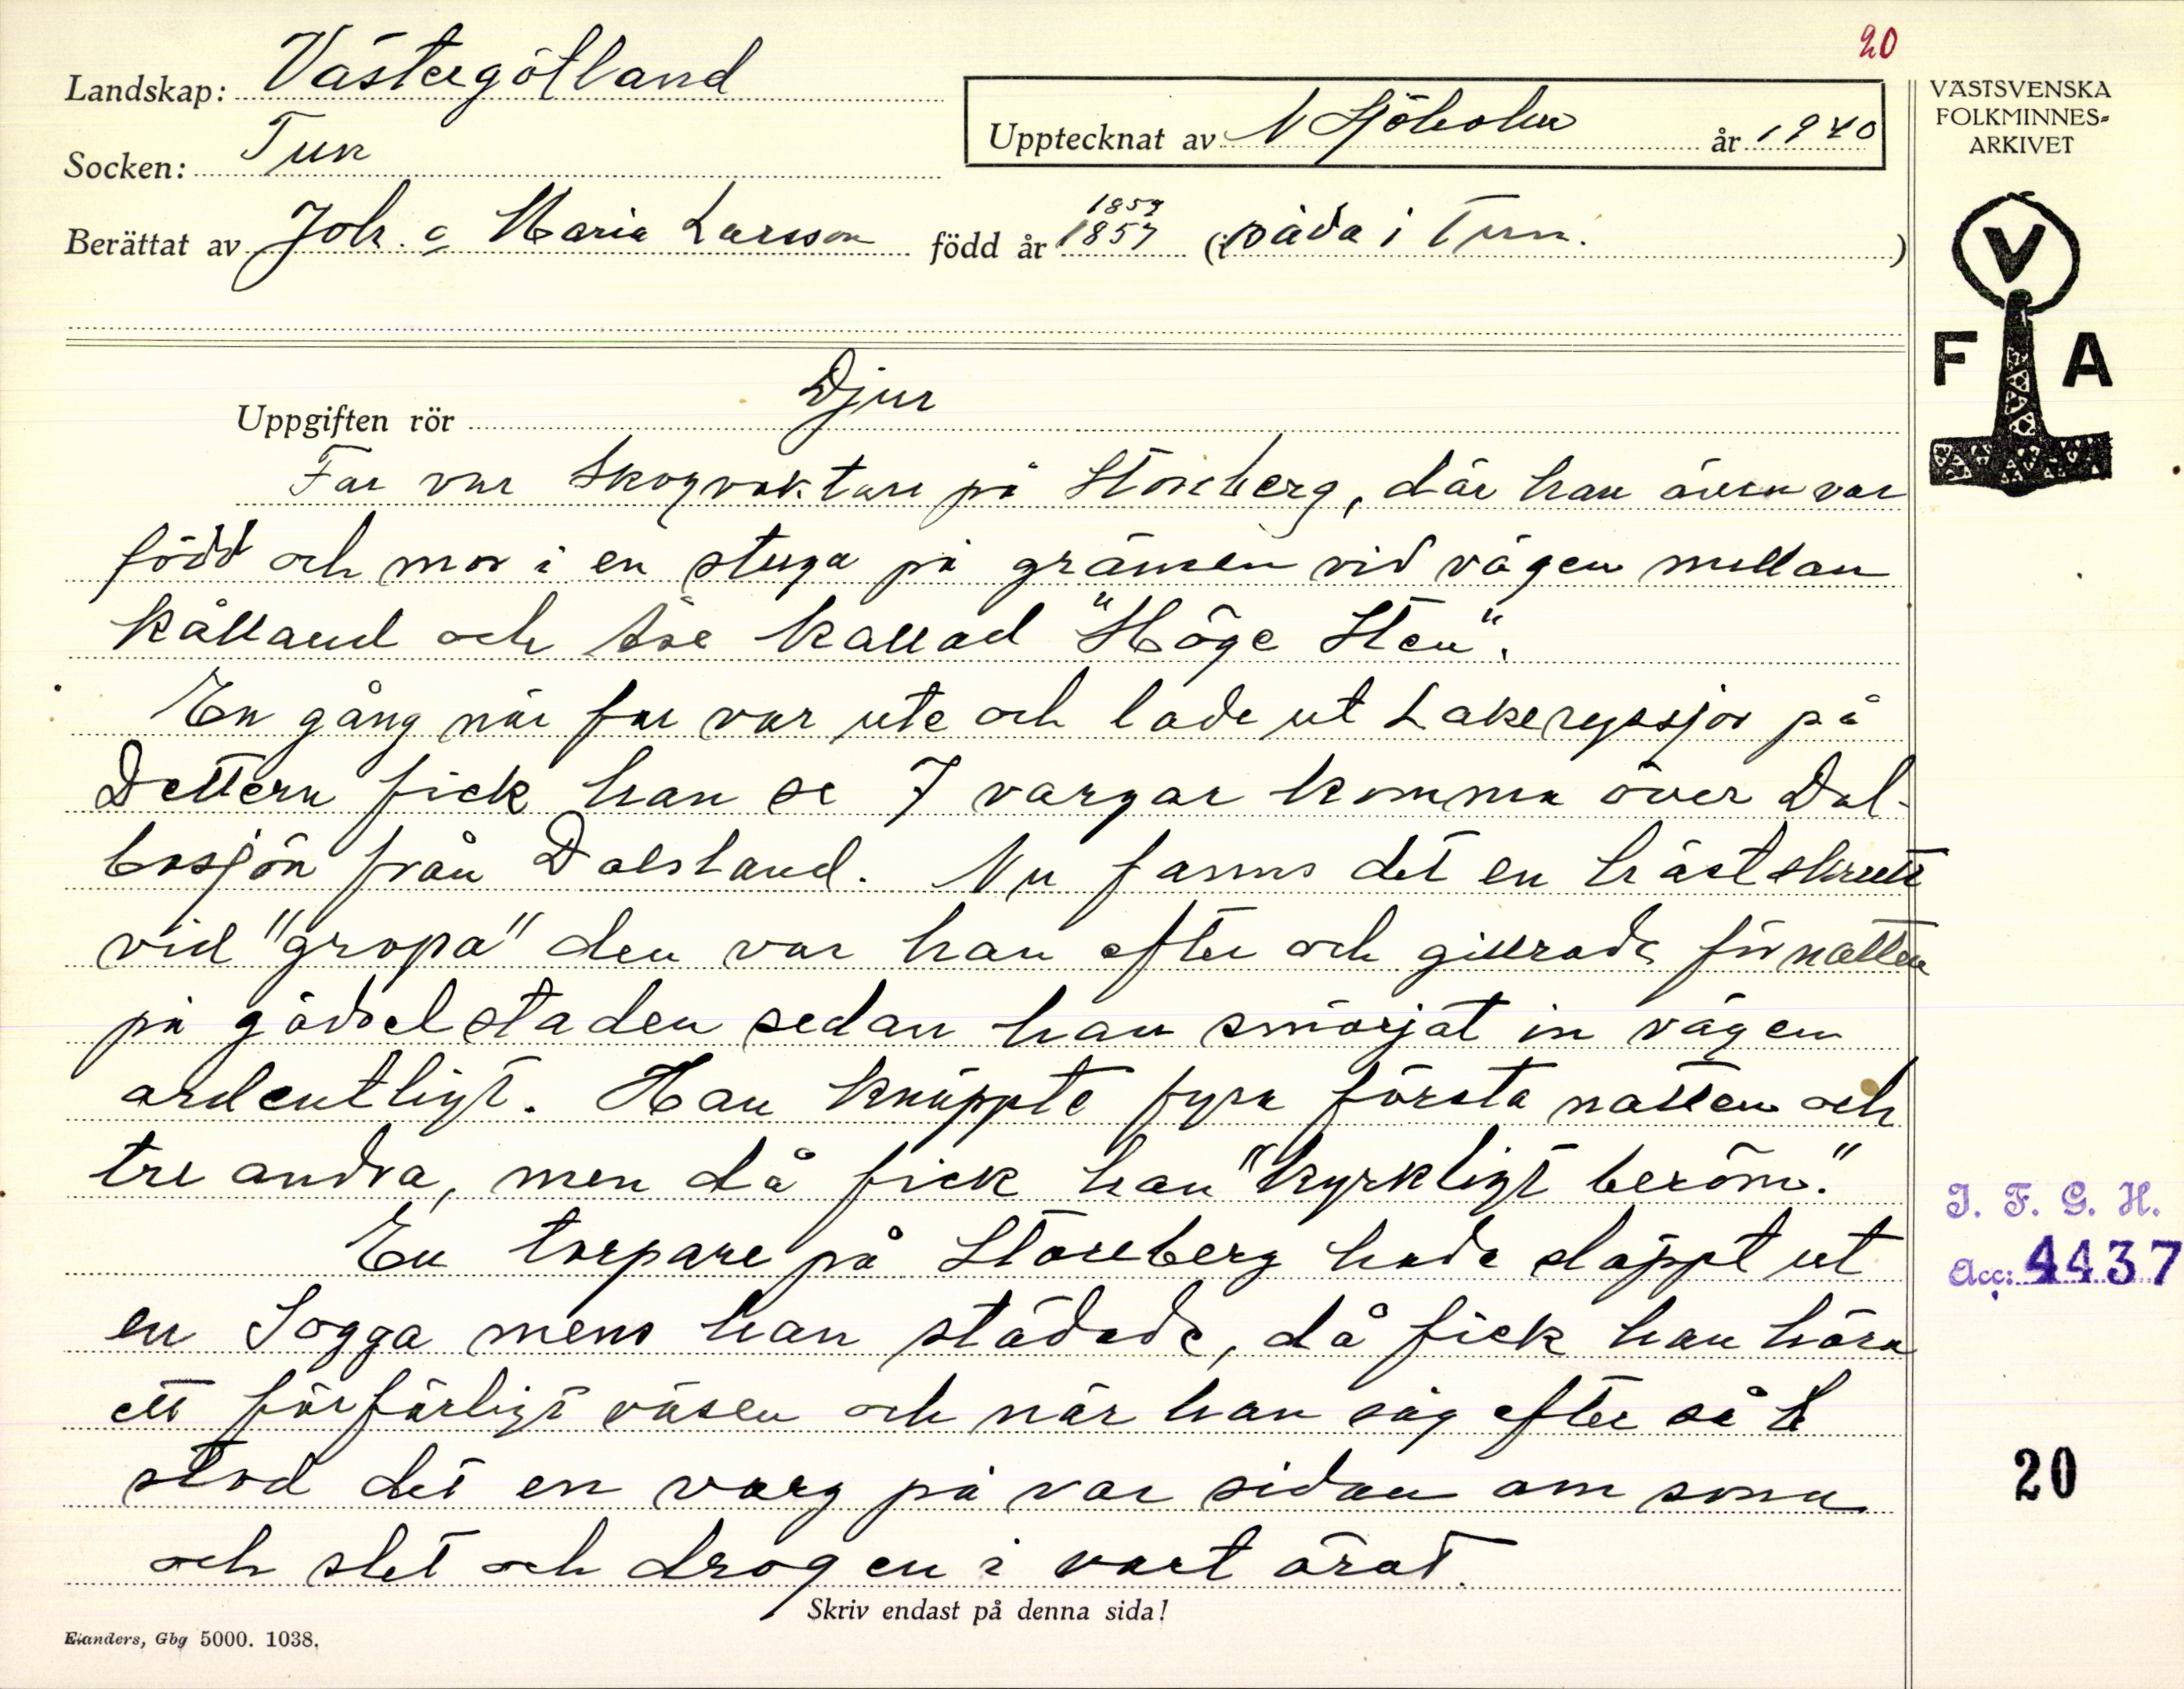 20
Landskap: Västergötland
Socken: Tun
Upptecknat av N Sjöholm år 1940
VÄSTSVENSKA
FOLKMINNES-
ARKIVET
Berättat av Joh. o Maria Larsson född år 1857 (i båda i Tun. )
1859
V
F A
Uppgiften rör Djur
Far var skogvaktare på Storeberg, där han även var
född och mor i en stuga på gränsen vid vägen mellan
Kålland och Åse kallad "Höge Sten".
En gång när far var ute och lade ut Lakeryssjor på
Dettern fick han se 7 vargar komma över Dal-
bosjön från Dalsland. Nu fanns det en hästskrutt
vid "gropa" den var han efter och gillrade för natten
på gödselstaden sedan han smörjat in vägen
ordentligt. Han knäppte fyra första natten och
tre andra, men då fick han "kyrkligt beröm".
En torpare på Storeberg hade släppt ut
en Sogga mens han städade, då fick han höra
ett förfärligt väsen och när han såg efter så
stod det en varg på var sidan om sona
och slet och drog en i vart örat.
J. F. G. H.
Acc: 4437
20
Skriv endast på denna sida!
Elanders, Gbg 5000. 1038.